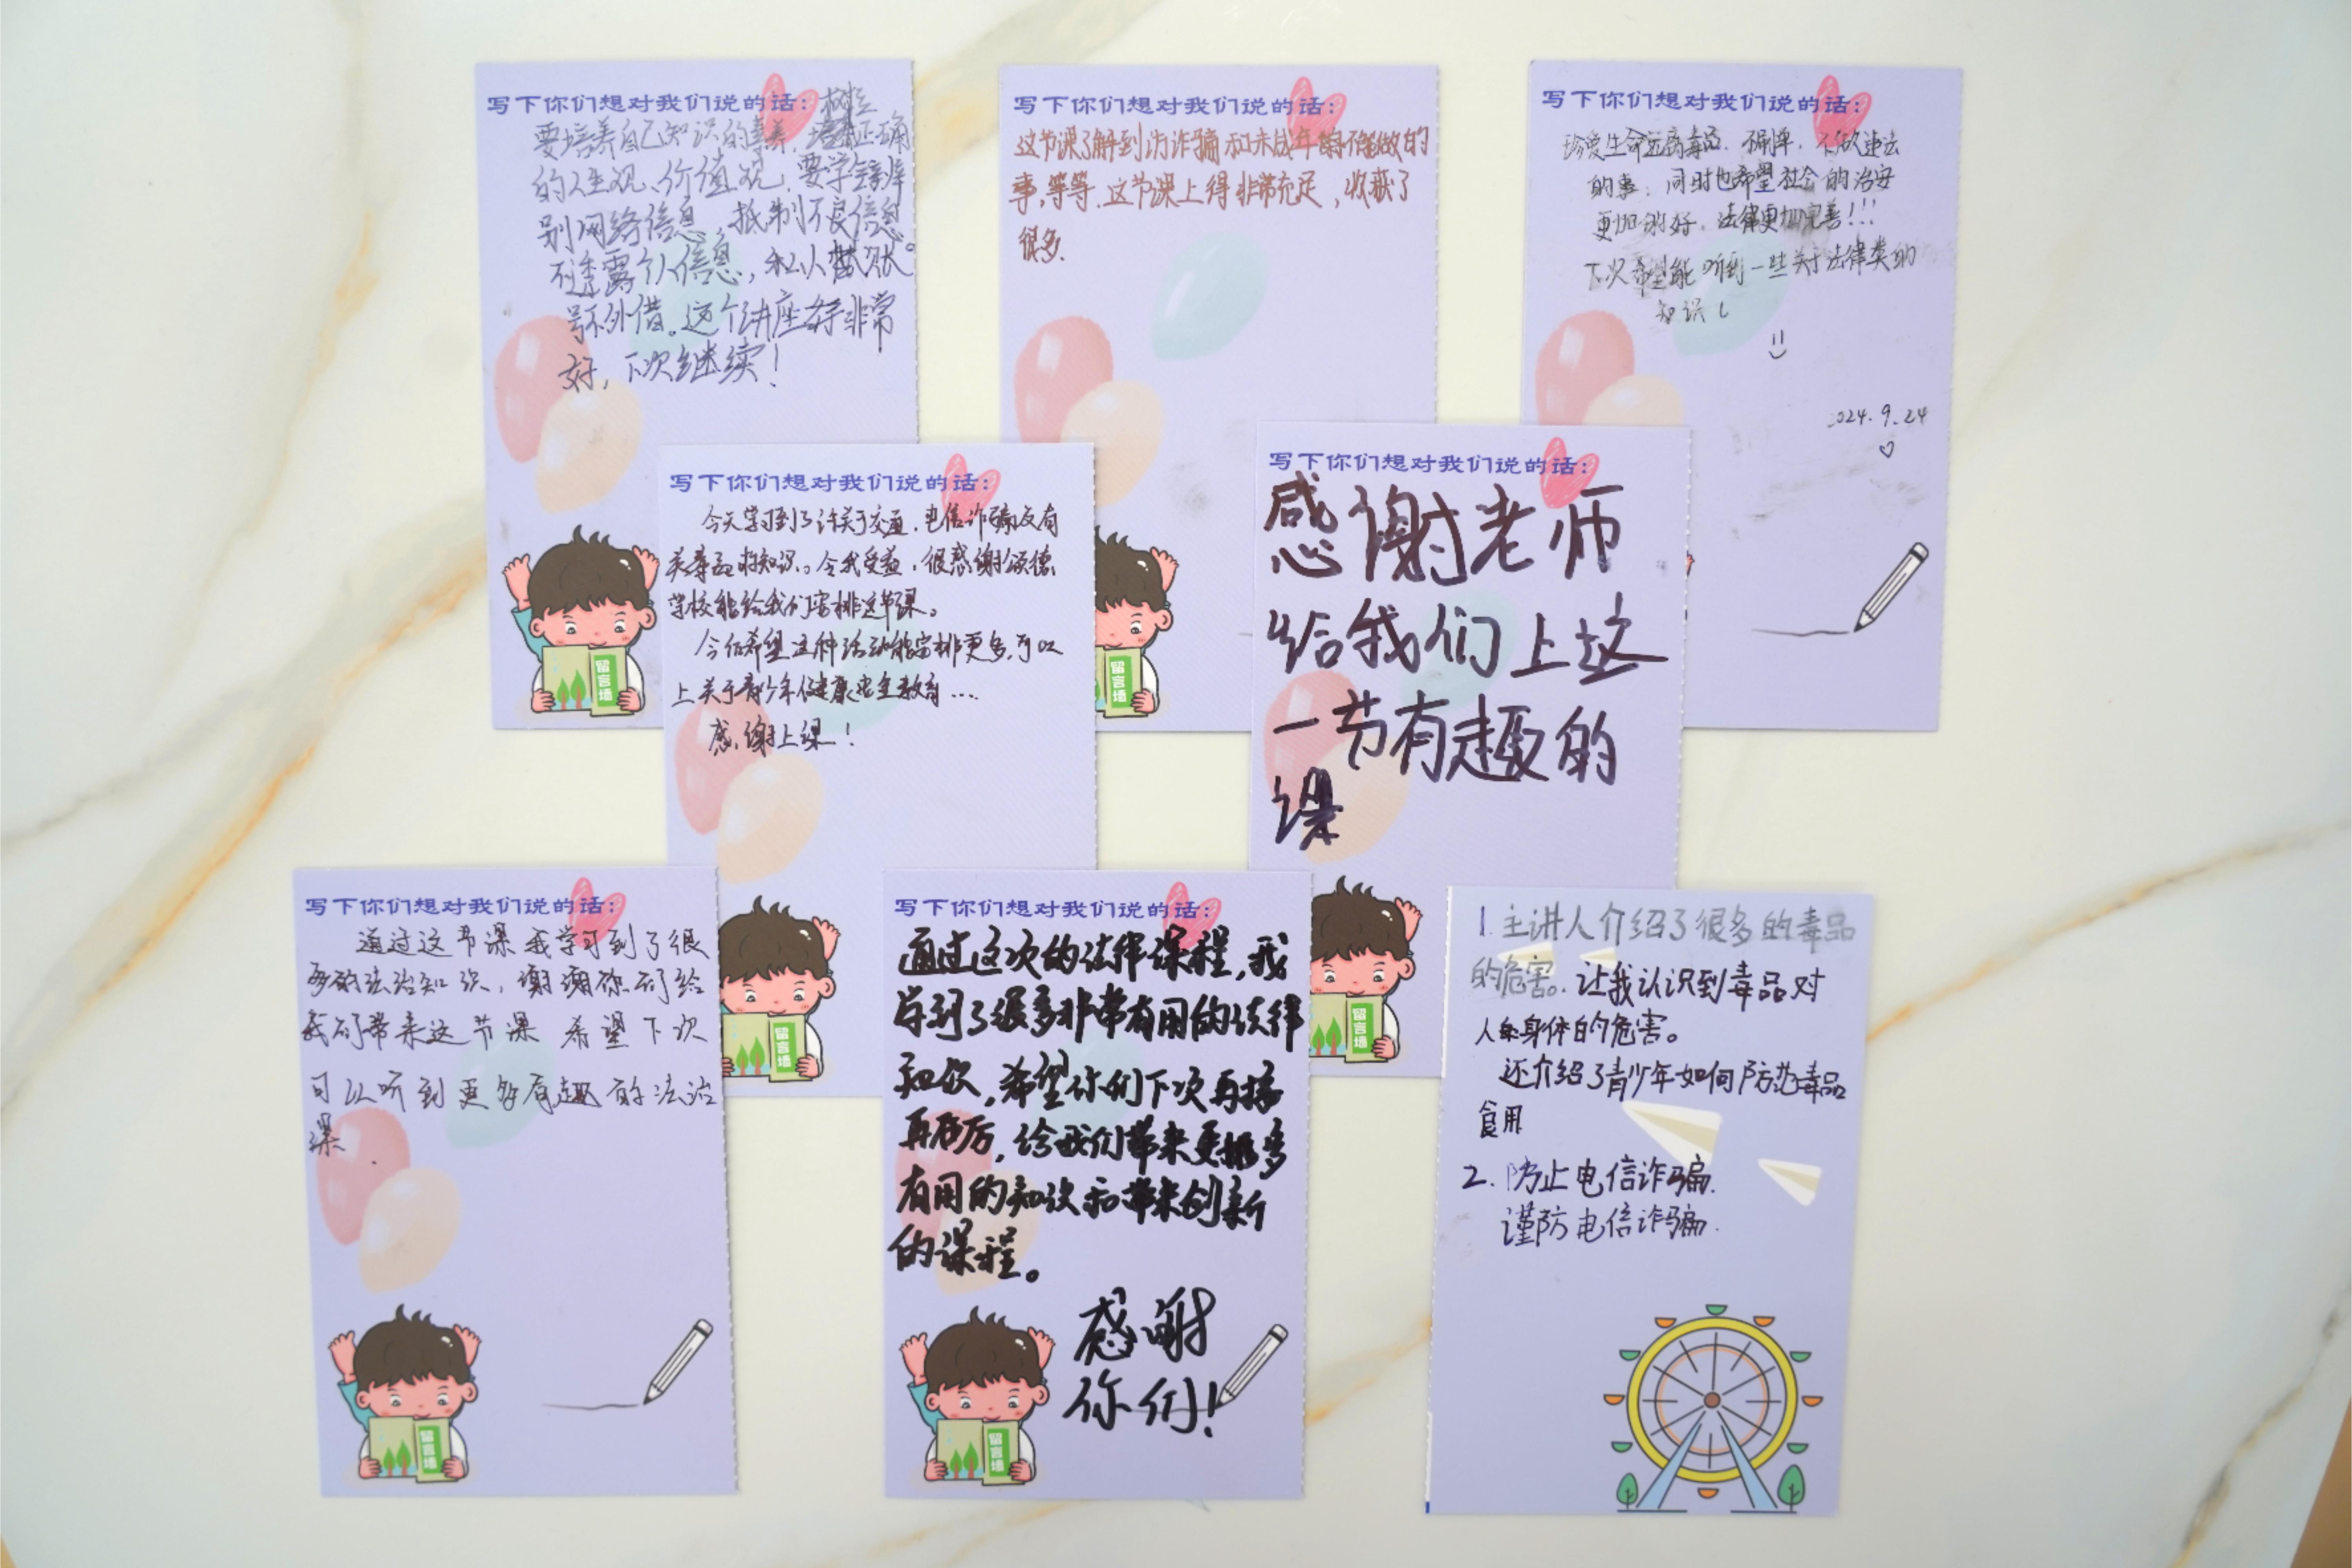 写下你们想对我们说的话：树立
要培养自己知识的素养，正确
的人生观、价值观，要学会辨
别网络信息 抵制不良信息。
不透露个人信息，私人账
号不外借。这个讲座非常
好，下次继续！
写下你们想对我们说的话：
这节课了解到诈骗和未成年不能做的
事，等等，这节课上得非常充足，收获了
很多.
写下你们想对我们说的话：
珍爱生命远离毒品，不做违法
的事，同时也希望社会的治安
更加的好，法律更加完善！！！
下次希望能听到一些关于法律类的
知识！
2024.9.24
写下你们想对我们说的话：
今天学习到了许关于交通，电信诈骗及有
关毒品的知识。令我受益，很感谢颂德
学校能给我们安排这节课。
今后希望这种活动能安排更多，可以
上关于青少年健康安全教育…
感谢上课！
留言墙
写下你们想对我们说的话：
感谢老师
给我们上这
一节有趣的
课
留言墙
写下你们想对我们说的话：
通过这节课我学习到了很
多的法治知识，谢谢你们给
我们带来这节课 希望下次
可以听到更多有趣的法治
课.
留言墙
留言墙
写下你们想对我们说的话：
通过这次的法律课程，我
学到了很多非常有用的法律
知识，希望你们下次再接
再厉，给我们带来更多
有用的知识和带来创新
的课程。
感谢
你们！
留言墙
留言墙
1.主讲人介绍了很多的毒品
的危害。让我认识到毒品对
人身体的危害。
还介绍了青少年如何防范毒品
食用
2.防止电信诈骗.
谨防电信诈骗.